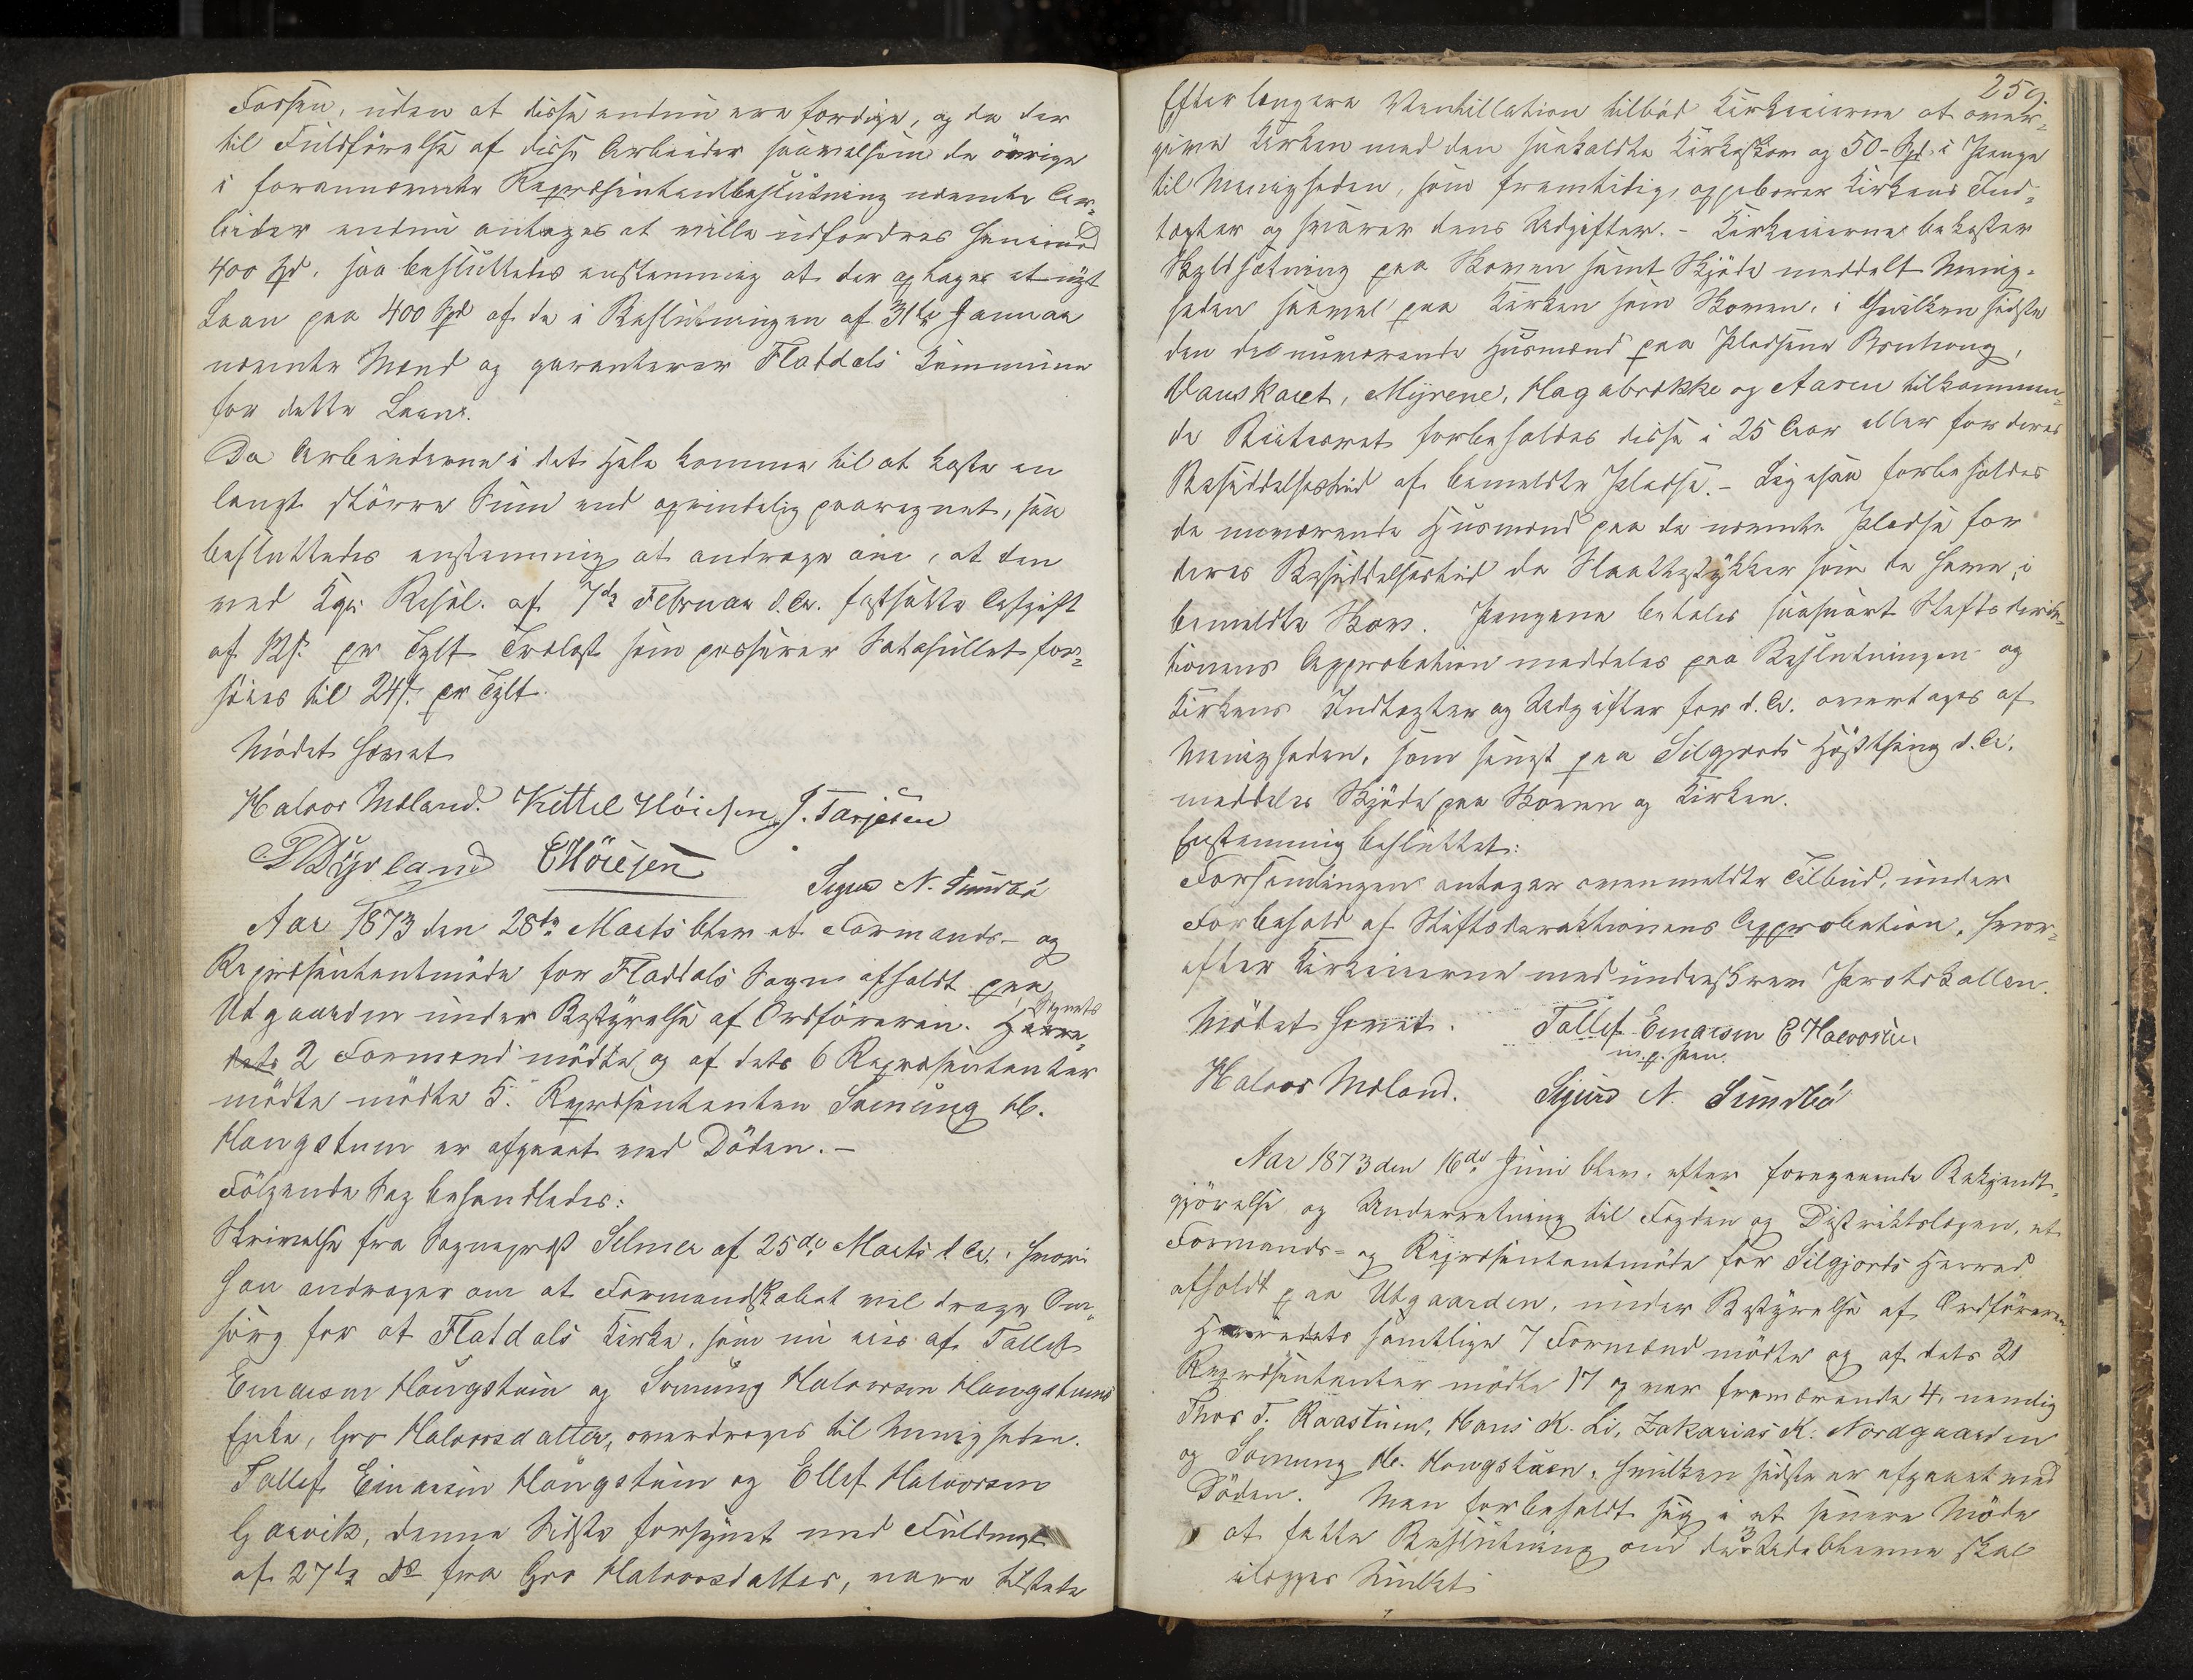 Fossen, uden at disse endnu ere færdige, og da der
til Fuldførelse af disse Arbeider saavelsom de øvrige
i forannævnte Repræsentantbeslutning nævnte Ar-
beider endnu antages at ville udfordres henimod
400 Spd. saa besluttedes enstemmig at der optages et nyt
Laan paa 400 Spd af de i Beslutningen af 31te Januar
nævnte Mænd og garanterer Flatdals Kommune
for dette Laan.
Da Arbeiderne i det Hele komme til at koste en
langt større Sum end oprindelig paaregnet, saa
besluttedes enstemmig at andrage om, at den
ved Kgl. Resol. af 7de Februar d. A. fastsatte Afgift
af 12 s. pr Tylt Trælast som passerer Satafullet for-
høies til 24 s. pr Tylt.
Mødet hævet
Halvor Moland. Kittel Høiesen J. Tarjesen
Dyrland E Høiesen
Sigurd N. Sundbö
Aar 1873 den 28de Marts blev et Formands- og
Repræsentantmøde for Flatdals Sogn afholdt paa
Utgaarden under Bestyrelse af Ordføreren. Herre- Sognets
dets 2 Formænd mødte, og af dets 6 Repræsentanter
mødte mødte 5. Repræsentanten Sveinung H.
Haugstuen er afgaaet ved Døden. –
Følgende Sag behandledes:
Skrivelse fra Sognepræst Selmer af 25de Marts d. A., hvori
han andrager om at Formandskabet vil drage Om-
sorg for at Flatdals Kirke, som nu eies af Tallef
Einarsen Haugstuen og Sveinung Halvorsen Haugstuens
Enke, Gro Halvorsdatter, overdrages til Menigheden.
Tallef Einarsen Haugstuen og Ellef Halvorsen
Garvik, denne Sidste forsynet med Fuldmagt
af 27de Ds fra Gro Halvorsdatter, vare tilstede
259.
Efter længere Ventillation tilbød Kirkeeierne at over-
give Kirken med den saakaldte Kirkeskov og 50 Spd. i Penge
til Menigheden, som fremtidig oppebærer Kirkens Ind-
tægter og svarer dens Udgifter. – Kirkeeierne bekoster
Skyldsætning paa Skoven samt Skjøde meddelt Menig-
heden saavel paa Kirken som Skoven, i hvilken sidste
den de nuværende Husmænd paa Pladsene Brohoug,
Vauskaret, Myrene, Hagabrække og Aaren tilkommen-
de Brugsret forbeholdes disse i 25 Aar eller for deres
Besiddelsestid af bemeldte Pladse. – Ligesaa forbeholdes
de nuværende Husmænd paa de nævnte Pladse for
deres Besiddelsestid de Slaattestykker som de have i
bemeldte Skov. Pengene betales saasnart Stiftsdirek-
tionens Approbation meddeles paa Beslutningen og
Kirkens Indtægter og Udgifter for d. A. overtages af
Menigheden, som senest paa Silgjords Høstthing d. A.
meddeles Skjøde paa Skoven og Kirken.
Enstemmig besluttet:
Forsamlingen antager ovenmeldte Tilbud, under
Forbehold af Stiftsdirektionens Approbation, hvor-
efter Kirkeeierne medunderskrev Protokollen.
Mødet hævet. Tallef Einarsen E Halvorsen
m. p. Pen.
Halvor Moland. Sigurd N. Sundbö
Aar 1873 den 16de Juni blev, efter foregaaende Bekjendt-
gjørelse og Underretning til Fogden og Distriktslægen, et
Formands- og Repræsentantmøde for Silgjords Herred
afholdt paa Utgaarden, under Bestyrelse af Ordføreren.
Herredets samtlige 7 Formænd mødte og af dets 21
Repræsentanter mødte 17 og var fraværende 4, nemlig
Thor T. Raastuen, Hans K. Li, Zakarias K. Nordgaarden
og Sveinung H. Haugstuen, hvilken sidste er afgaaet ved
Døden. Man forbeholdt sig i et senere Møde
at fatte Beslutning om de 3 skal